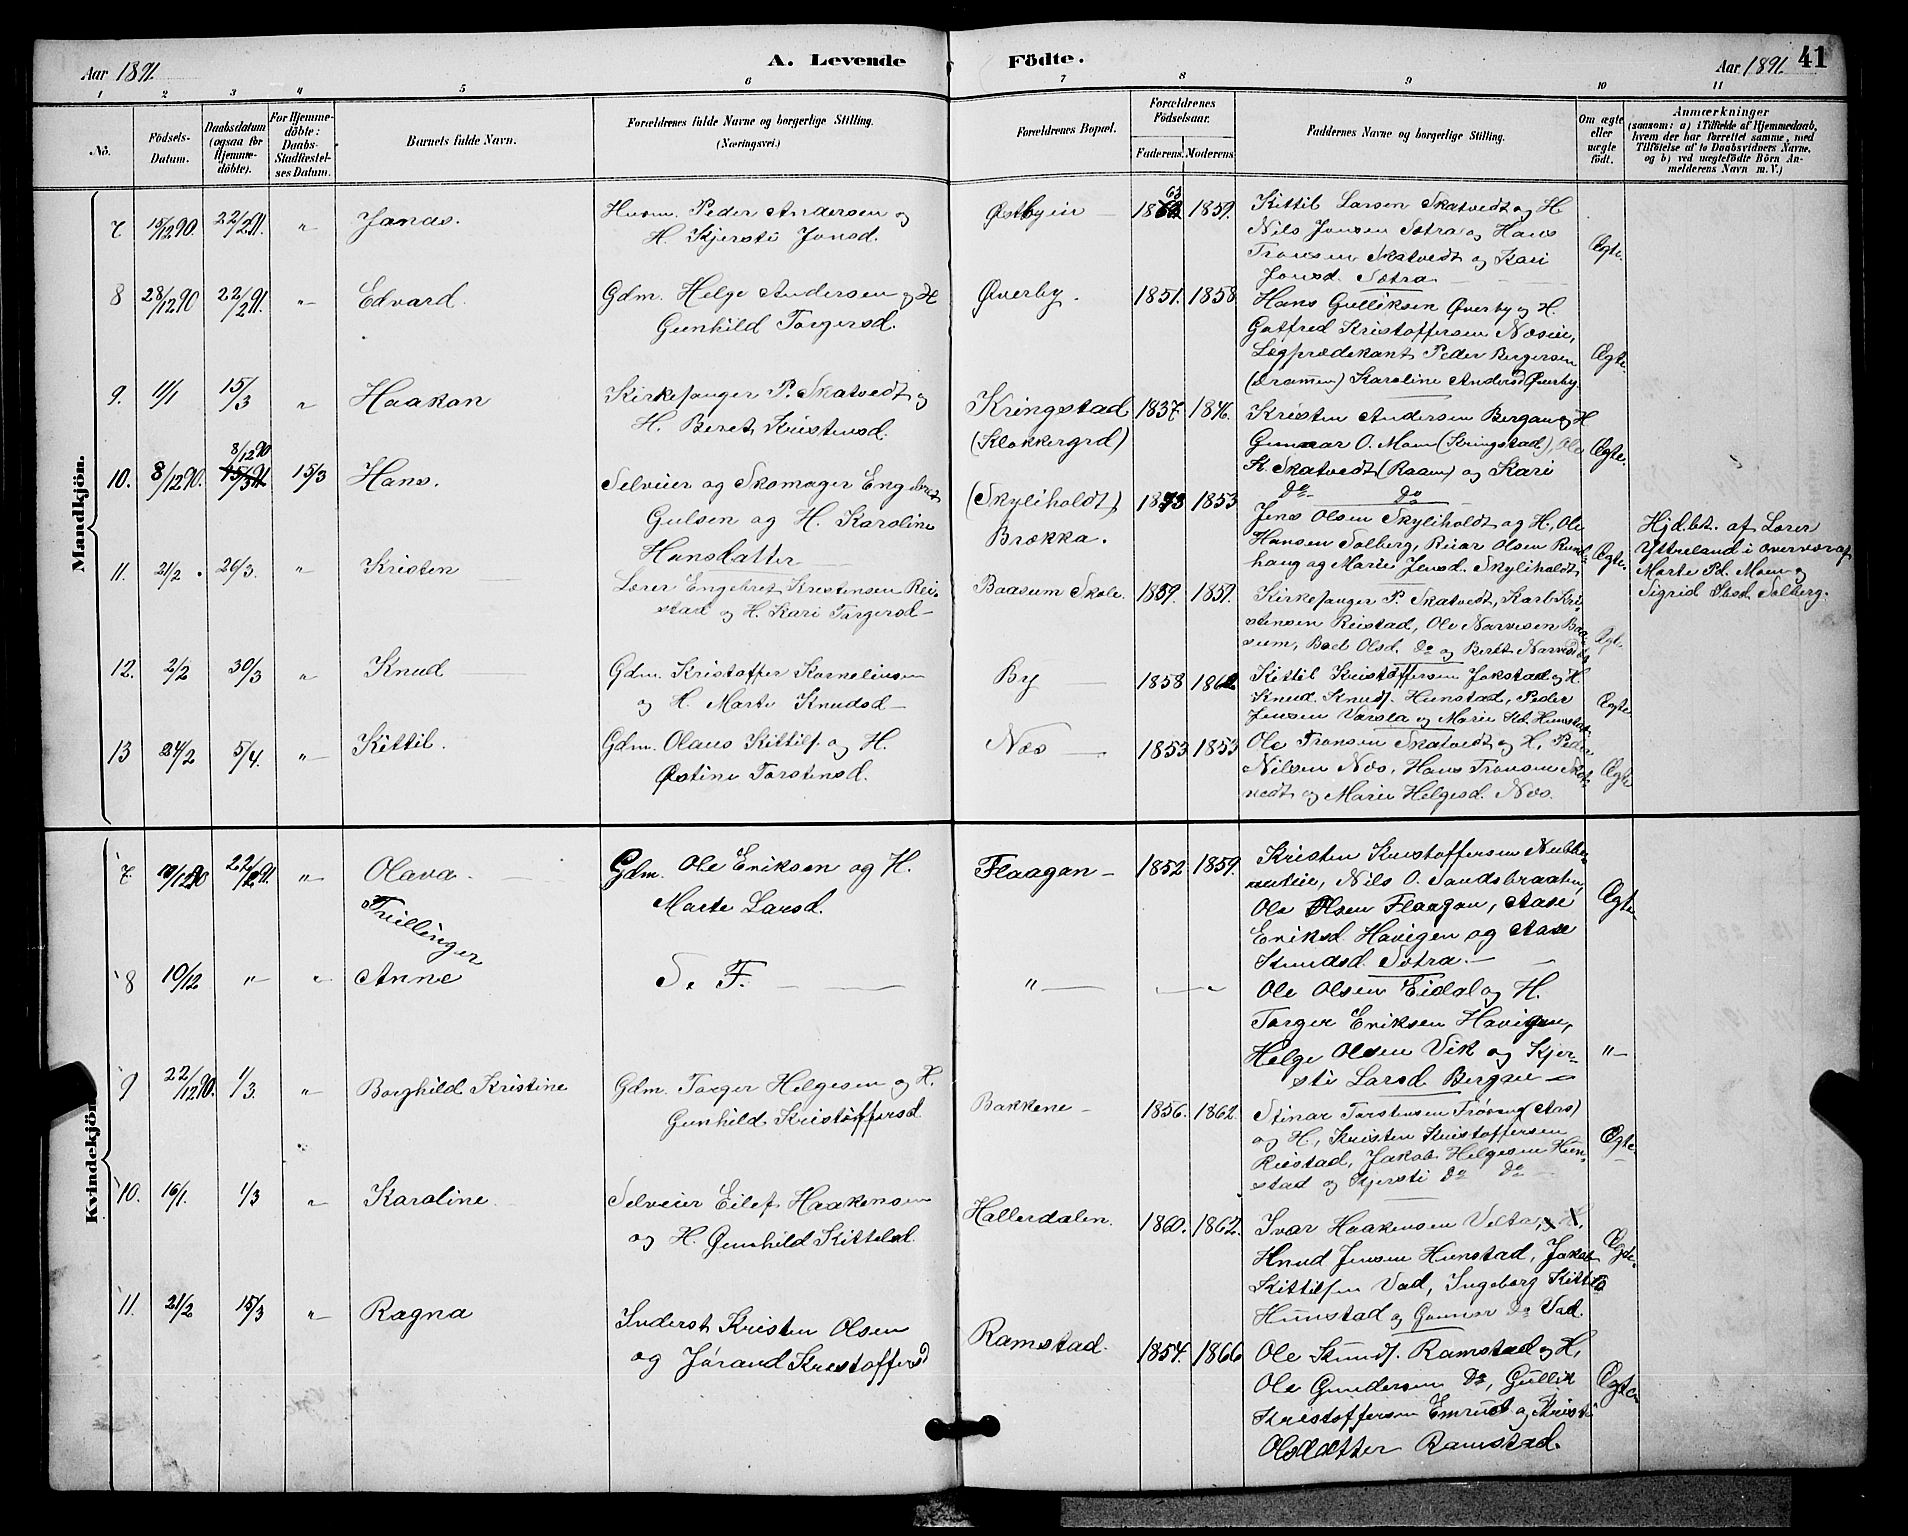 Aar 1891.
A. Levende
Födte.
Aar 1891.
41
1 2 3 4 5 6 7 8 9 10 11
No.
Födsels-Datum.
Daabsdatum (ogsaa for Hjemmedöbte).
For Hjemmedöbte: Daabs-Stadfæstelses Datum.
Barnets fulde Navn.
Forældrenes fulde Navne og borgerlige Stilling.
(Næringsvei.)
Forældrenes Bopæl.
Forældrenes Födselsaar.
Faderens. Moderens.
Faddernes Navne og borgerlige Stilling.
Om ægte eller uægte födt.
Anmærkninger
(saasom: a) i Tilfælde af Hjemmedaab, hvem der har forrettet samme, med Tilföielse af to Daabsvidners Navne, og b) ved uægtefödte Börn Anmelderens Navn m. V.)
Mandkjön.
7 15/12 90. 22/2 91. " Jonas.
Husm. Peder Andersen og
H. Kjersti Jonsd.
Østbyeie 1863 1859.
Kittil Larsen Skatvedt og H
Nils Jonsen Sætra og Hans
Tronsen Skatvedt og Kari
Jonsd. Sætra
Ægte.
8 28/12 90 22/2 91. " Edvard.
Gdm. Helge Andersen og H
Gunhild Torgersd.
Øverby. 1851. 1858.
Hans Gulliksen Øverby og H.
Gotfred Kristoffersen Næseie,
Lægprædekant Peder Bergersen
(Drammen) Karoline Andersd Øverby.
Ægte.
9. 11/1 15/3 " Haakon
Kirkesanger P. Skatvedt og
H. Beret Kristensd.
Kringstad
(Klokkergrd)
1837. 1846.
Kristen Andersen Bergan og H
Gunnar O. Moen (Kringstad), Ole
K. Skatvedt (Raaen) og Kari
Do Do
Ægte.
10. 8/12 90. 8/12 90 15/3 91. 15/3 Hans.
Selveier og Skomager Engebret
Gulsen og H. Karoline
Hansdatter
(Skyliholdt)
Brækka.
1873 1853
Jens Olsen Skyliholdt og H, Ole
Hansen Solberg, Reiar Olsen
haug og Marie Jensd. Skyliholdt
Ægte.
Hjd.bt. af Lærer
Yttreland i overvær af
Marte Pd. Moen og
Sigrid Solberg.
11. 21/2. 26/3. " Kristen
Lærer Engebret Kristensen Rei-
stad og H. Kari Torgersd
Baasum Skole. 1859. 1859.
Kirkesanger P. Skatvedt, Karl Kri-
stensen Reistad, Ole Narvesen Baa-
sum, Olsd. Do og Beret Narvesd Do
Ægte.
12. 2/2 30/3 " Knud
Gdm. Kristoffer Kornelius­sen
og H. Marte Knudsd
By 1858 1862
Kittil Kristoffersen Jokstad og H.
Knud Knuds. Hunstad, Peder
Jensen Varsla og Marie Hunstad.
Ægte
13 24/2 5/4. " Kittil.
Gdm. Olaus Kittils. og H.
Østine Torstensd.
Næs 1853 1853
Ole Tronsen Skatvedt og H, Peder
Nilsen Næs, Hans Tronsen Skat-
vedt og Marie Helgesd. Næs.
Ægte
Kvindekjön.
7 10/12 90 22/2 91. " Olava.
Gdm. Ole Eriksen og H.
Marte Larsd.
Flaagan 1852 1859.
Kristen Kristoffersen
Nils O. Sandsbraaten,
Ole Olsen Flaagan, Aase
Eriksd. Havigen og Aase
Knudsd. Sætra.
Ægte
Tvillinger
8 10/12 " " Anne
S. F.
"
Ole Olsen Eidal og H.
Torger Eriksen Havigen,
Helge Olsen Vik og Kjer-
sti Larsd. Bergan
"
9 22/12 90. 1/3. " Borghild Kristine
Gdm. Torger Helgesen og H.
Gunhild Kristoffersd.
Bakkene 1856. 1862.
Steinar Torstensen (Aas)
og H, Kristen Kristoffersen
Reistad, Jakob Helgesen Hun-
stad og Kjersti Do Do
Ægte
10. 16/1. 1/3 " Karoline.
Selveier Eilef Haakensen
og H. Gunhild Kittelsd.
Hallerdalen. 1860. 1862.
Ivar Haakensen Velta, og H.
Knud Jensen Hunstad, Jakob
Kittilsen Vad, Ingeborg Kittilsd
Hunstad og Gunnor Do Vad.
Ægte.
11. 21/2 15/3 " Ragna
Inderst Kristen Olsen
og Jørand Kristoffersd
Ramstad. 1854. 1866
Ole Knuds. Ramstad og H,
Ole Gundersen Do, Gullik
Kristoffersen Emrud og Kristi
Olsdatter Ramstad.
Ægte